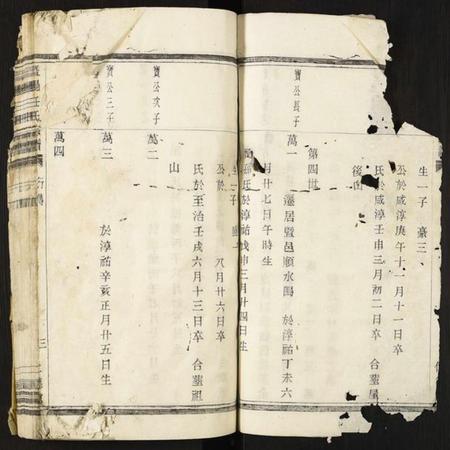 生一子 豪三
公於咸淳庚午十一月十一日卒
氏於咸淳壬申三月初二日卒 合塟屋
後
第四世
寶公長子
萬一 遷居暨邑順水 於淳祐丁未六
月廿七日午時生
氏於淳祐戊申三月廿四日生
生一子
公 八月廿六日卒
氏於至治壬戌六月十三日卒 合塟祖
山
寶公次子
萬二
寶公三子
萬三 於淳祐辛亥正月廿五日生
萬四
氏宗譜
三